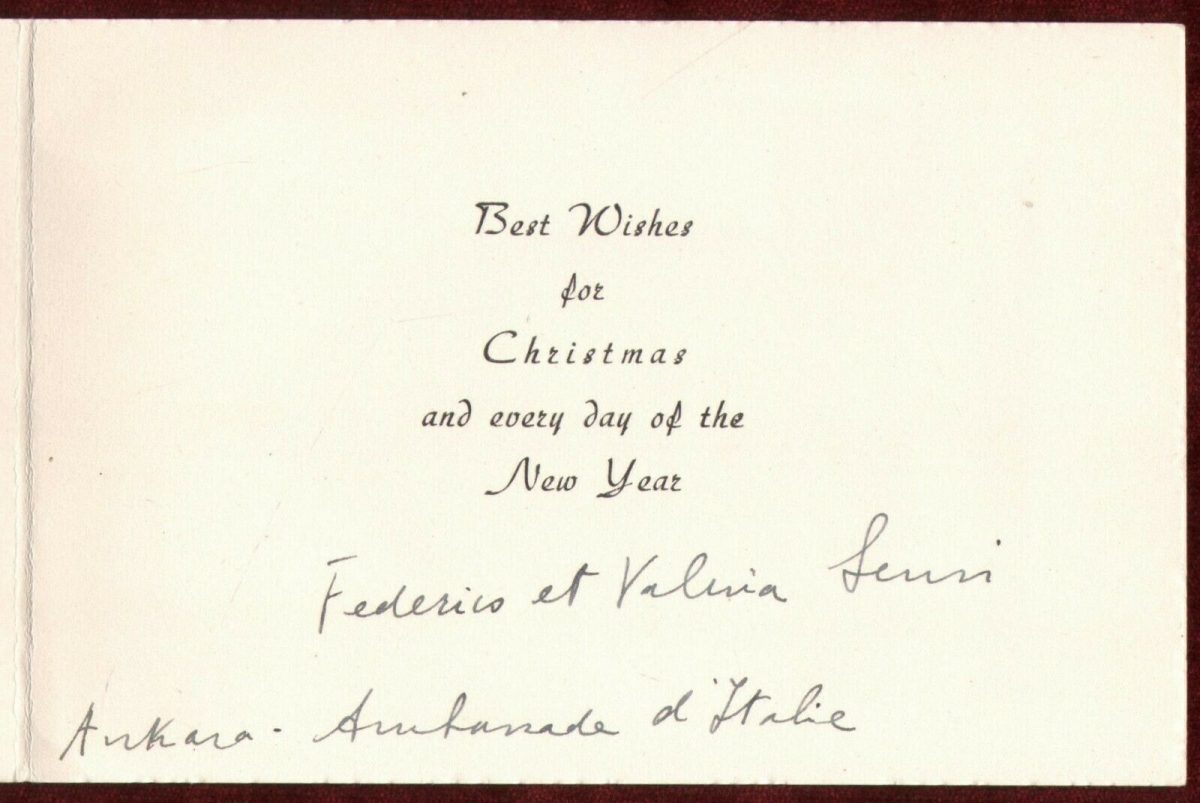 Best Wishes
for
Christmas
and every day of the
New Year
Federico et Valeria Sensi
Ankara - Ambassade d'Italie